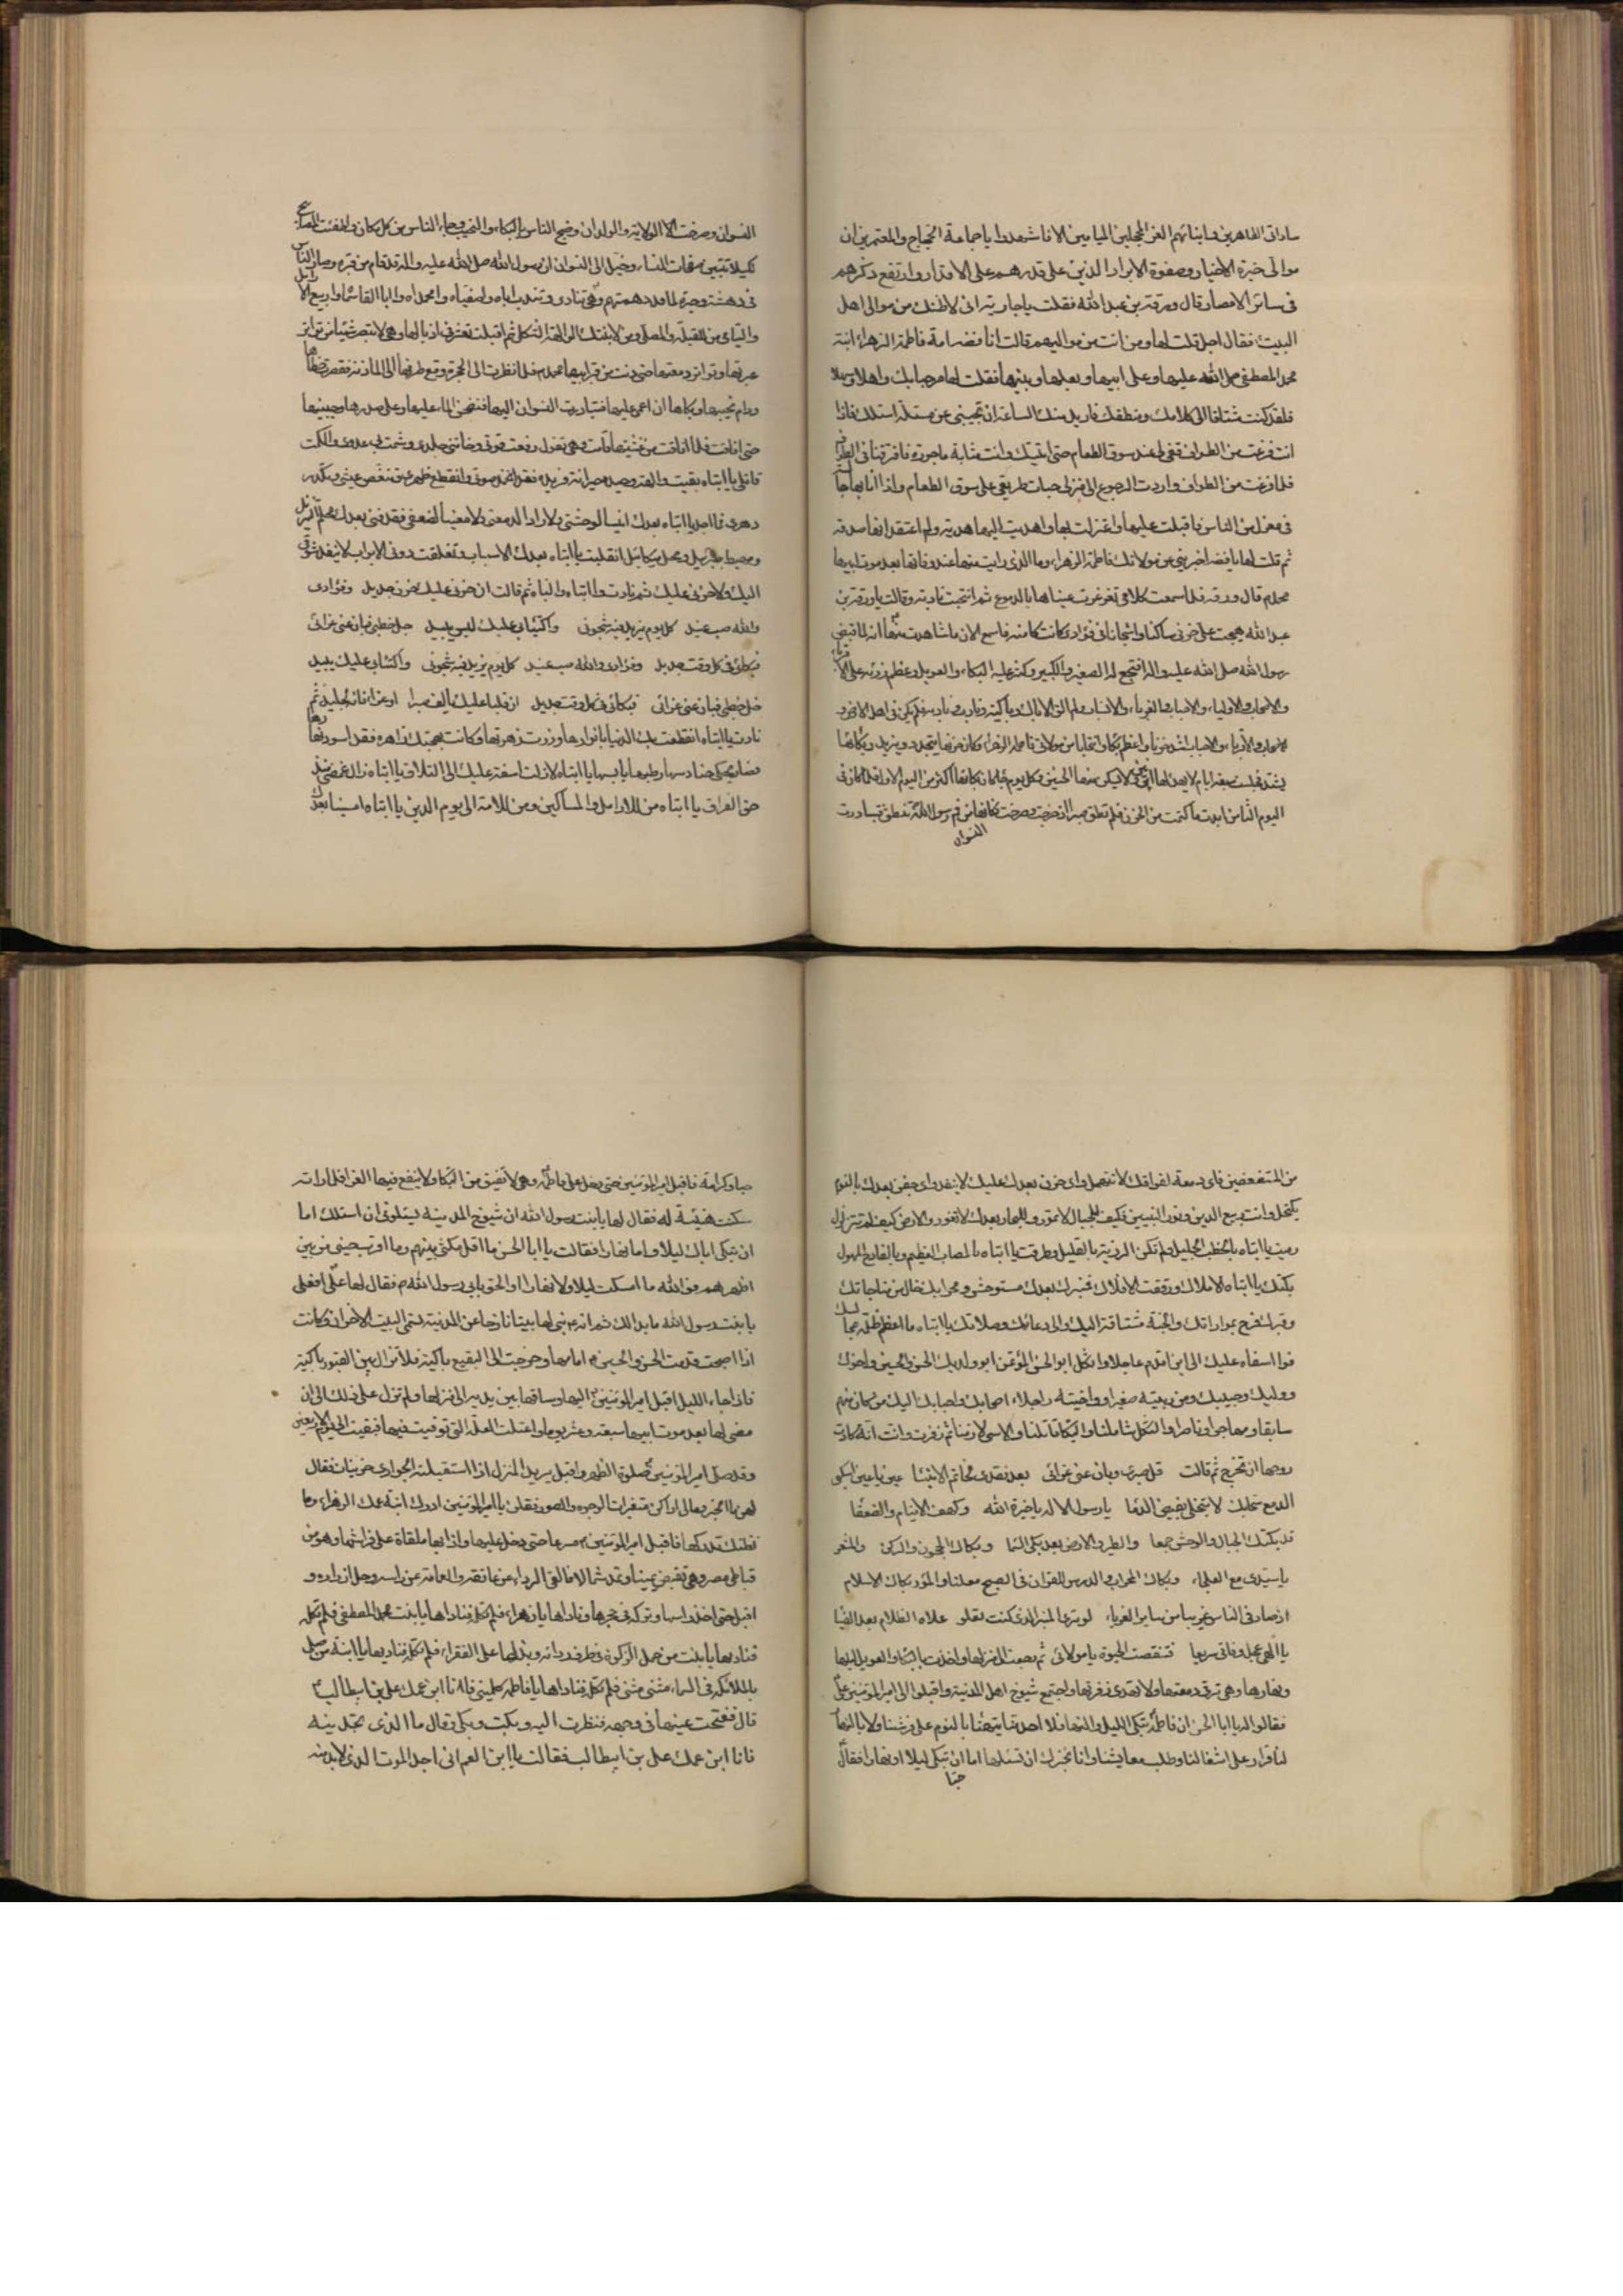 ساداتى الطاهرين وابنائهم الغر المحجلين الميامين الا فاشهدوا يا جماعة الحجاج والمعتمرين ان
موالى خيرة الاخيار وصفوة الابرار الذين على قدرهم على الاقدار وارتفع ذكرهم
فى سائر الامصار قال ورقة بن عبد الله فقلت يا جارية انى لاظنك من موالى اهل
البيت فقال اجل قلت لها ومن انت من مواليهم قالت انا فضه امة فاطمة الزهراء ابنة
محمد المصطفى صلى الله عليها وعلى ابيها وبعلها وبنيها فقلت لها مرحبا بك واهلا وسهلا
فلقد كنت مشتاقا الى كلامك ومنطقك فاريد منك الساعة ان تجيبنى عن مسئلة اسئلك فاذا
انت فرغت من الطواف قفى لى عند سوق الطعام حتى اتيتك وانت مثابة ماجورة فافترقنا فى الطواف
فلما فرغت من الطواف واردت الرجوع الى منزلى جعلت طريقى على سوق الطعام واذا انا بها جالسة
فى معزل من الناس فاقبلت عليها واعتزلت بها واهديت اليها هدية ولم اعتقد انها صدقة
ثم قلت لها يا فضه اخبرينى عن مولاتك فاطمة الزهراء وما الذى رايت منها عند وفاتها بعد موت ابيها
محمد قال ورقة فلما سمعت كلامى تغرغرت عيناها بالدموع ثم انتحبت نادبة وقالت يا ورقة بن
عبد الله هيجت على حزنى ساكنا واشجانا فى فؤادى كانت كامنة فاسمع الان ما شاهدت منها انه لما قبض
رسول الله صلى الله عليه واله افتجع له الصغير والكبير وكثر عليه البكاء والعويل وعظم رزئه على الاقرباء
والاصحاب والاولياء والاحباب والغرباء والانساب ولم تلق الا باك وباكية ونادب ونادبة فلم يكن فى اهل الارض و
الاصحاب والاقرباء والاحباب اشد حزنا واعظم بكاء وانتحابا من مولاتى فاطمة الزهراء وكان حزنها يتجدد ويزيد وبكائها
يشتد فجلست سبعة ايام لا يهدا لها انين ولا يسكن منها الحنين وكل يوم جاء كان بكائها اكثر من اليوم الاول فلما كان فى
اليوم الثامن ابدت ما كتمت من الحزن فلم تطق صبرا اذ خرجت وصرخت فكانها من فم رسول الله تنطق فتبادرت
النسوان
النسوان وخرجت الولايد والولدان وضج الناس بالبكاء والنحيب وجاء الناس من كل مكان واطفئت المصابيح
لكيلا تتبين صفحات النساء وخيل الى النسوان ان رسول الله صلى الله عليه واله قد قام من قبره وصار الناس
فى دهشة وحيرة لما قد رهقهم وهى تنادى وتندب اباه وا ابتاه واصفياه وامحمداه وا ابا القاسماه واربيع الارامل
واليتامى من للقبلة والمصلى ومن لابنتك الوالهة الثكلى ثم اقبلت تعثر فى اذيالها وهى لا تبصر شيئا من تواتر
عبرتها وتواتر دمعتها حتى دنت من قبر ابيها محمد فلما نظرت الى الحجرة وقع طرفها الى الماذنة فقصرت خطاها
ودام نحيبها وبكاها الى ان اغمى عليها فتبادرت النسوان اليها فنضحن الماء عليها وعلى صدرها وجبينها
حتى افاقت فلما افاقت من غشيتها قامت وهى تقول رفعت قوتى وخاننى جلدى وشمت بى عدوى والكمد
قاتلى يا ابتاه بقيت والهة وحيدة وحيرانة فريدة فقد انخمد صوتى وانقطع ظهرى وتنغص عيشى وتكدر
دهرى فما اجد يا ابتاه بعدك انيسا لوحشتى ولا رادا لدمعتى ولا معينا لضعفى فقد فنى بعدك محكم التنزيل
ومهبط جبرئيل ومحل ميكائيل انقلبت يا ابتاه بعدك الاسباب وتغلقت دونى الابواب لا ينفد شوقى
اليك ولا حزنى عليك ثم نادت وا ابتاه والباه ثم قالت ان حزنى عليك حزن جديد وفؤادى
والله صب عنيد كل يوم يزيد فيه شجونى واكتيابى عليك ليس يبيد جل خطبى فبان عنى عزائى
فبكائى فى كل وقت جديد وفؤادى والله صب عنيد كل يوم يزيد فيه شجونى واكتيابى عليك يبيد
جل خطبى فبان عنى عزائى فبكائى فى كل وقت جديد ان قلبا عليك يالف صبرا او عزاء فانه لجليد ثم
نادت يا ابتاه انقطعت بك الدنيا بانوارها وزوت زهرتها وكانت ببهجتك زاهرة فقد اسود نهارها
فصار يحكى حنادسها رطبها يابسها يا ابتاه لا زلت اسفة عليك الى التلاق يا ابتاه زال غمضى منذ
حق الفراق يا ابتاه من للارامل والمساكين ومن للامة الى يوم الدين يا ابتاه امسينا بعدك
من المستضعفين فاى دمعة لفراقك لا تنهمل واى حزن بعدك عليك لا يتصل واى جفن بعدك بالنوم
يكتحل وانت ربيع الدين ونور النبيين فكيف للجبال لا تمور وللبحار بعدك لا تغور والارض كيف لم تتزلزل
رميت يا ابتاه بالخطب الجليل ولم تكن الرزية بالقليل وطرقت يا ابتاه بالمصاب العظيم وبالفادح المهول
بكتك يا ابتاه الاملاك ووقفت الافلاك فمنبرك بعدك مستوحش ومحرابك خال من مناجاتك
وقبرك فرح بمواراتك والجنة مشتاقة اليك والى دعائك وصلاتك يا ابتاه ما اعظم ظلمة مجالسك
فوا اسفاه عليك الى ان اقدم عاجلا عليك واثكل ابو الحسن المؤتمن ابو ولديك الحسن والحسين واخوك
ووليك وحبيبك ومن ربيته صغيرا وواخيته كبيرا واجلاء احبابك واصحابك اليك من كان منهم
سابقا ومهاجرا وناصرا والثكل شاملنا والبكاء قاتلنا والاسى لازمنا ثم زفرت وانت انة كادت
روحها ان تخرج ثم قالت قل صبرى وبان عنى عزائى بعد فقدى لخاتم الانبيا عين يا عين اسكبى
الدمع سحا ويك لا تبخلى بفيض الدما يا رسول الاله يا خيرة الله وكهف الايتام والضعفا
قد بكتك الجبال والوحش جمعا والطير والارض بعد بكى السما وبكاك الحجون والركن والمشعر
يا سيدى مع البطحاء وبكاك المحراب والدرس للقران فى الصبح معلنا والمساء وبكاك الاسلام
اذ صار فى الناس غريبا من ساير الغرباء لو ترى المنبر الذى كنت تعلو علاه الظلام بعد الضيا
يا الهى عجل وفاتى سريعا فتنغصت الحيوة يا مولائى ثم رجعت الى منزلها واخذت بالبكاء والعويل ليلها
ونهارها وهى لا ترقى دمعتها ولا تهدى زفرتها واجتمع شيوخ اهل المدينة واقبلوا الى امير المؤمنين على
فقالوا له يا ابا الحسن ان فاطمة تبكى الليل والنهار فلا احد منا يتهنا بالنوم على فرشنا ولا بالنهار
لنا قرار على اشغالنا وطلب معايشنا وانا نخبرك ان تسئلها اما ان تبكى ليلا او نهارا فقال
حبا
حبا وكرامة فاقبل امير المؤمنين حتى دخل على فاطمة وهى لا تفيق من البكاء ولا ينفع فيها العزاء فلما راته
سكنت هنيئة له فقال لها يا بنت رسول الله ان شيوخ المدينة يسئلونى ان اسئلك اما
ان تبكى اباك ليلا واما نهارا فقالت يا ابا الحسن ما اقل مكثى بينهم وما اقرب مغيبى من بين
اظهرهم فوالله ما اسكت ليلا ولا نهارا او الحق بابى رسول الله فقال لها على افعلى
يا بنت رسول الله ما بدا لك ثم انه بنى لها بيتا نازحا عن المدينة يسمى البيت الاحزان وكانت
اذا اصبحت قدمت الحسن والحسين امامها وخرجت الى البقيع باكية فلا تزال بين القبور باكية
فاذا جاء الليل اقبل امير المؤمنين اليها وساقها بين يديه الى منزلها ولم تزل على ذلك الى ان
مضى لها بعد موت ابيها سبعة وعشرين يوما واعتلت العلة التى توفيت فيها فبقيت الى يوم الاربعين
وقد صلى امير المؤمنين صلوة الظهر واقبل يريد المنزل اذا استقبلته الجوارى حزينات فقال
لهن ما الخبر ومالى اراكن متغيرات الوجوه والصور فقلن يا امير المؤمنين ادرك ابنة عمك الزهراء وما
نظنك تدركها فاقبل امير المؤمنين مسرعا حتى دخل عليها واذا بها ملقاة على فراشها وهو من
قباطى مصر وهى تقبض يمينا وتمد شمالا فالقى الرداء عن عاتقه والعمامة عن راسه وحل ازاره و
اقبل حتى اخذ راسها وتركه فى حجرها وناداها يا زهراء فلم تكلمه فناداها يا بنت محمد المصطفى فلم تكلمه
فناداها يا بنت من حمل الزكوة فى طرف ردائه وبذلها على الفقراء فلم تكلمه فناداها يا ابنة من صلى
بالملائكة فى السماء مثنى مثنى فلم تكلمه فناداها يا فاطمة كلمينى فانا ابن عمك على بن ابيطالب
قال ففتحت عينها فى وجهه فنظرت اليه وبكت وبكى وقال ما الذى تجدينه
فانا ابن عمك على بن ابيطالب فقالت يا ابن العم انى اجد الموت الذى لابد منه